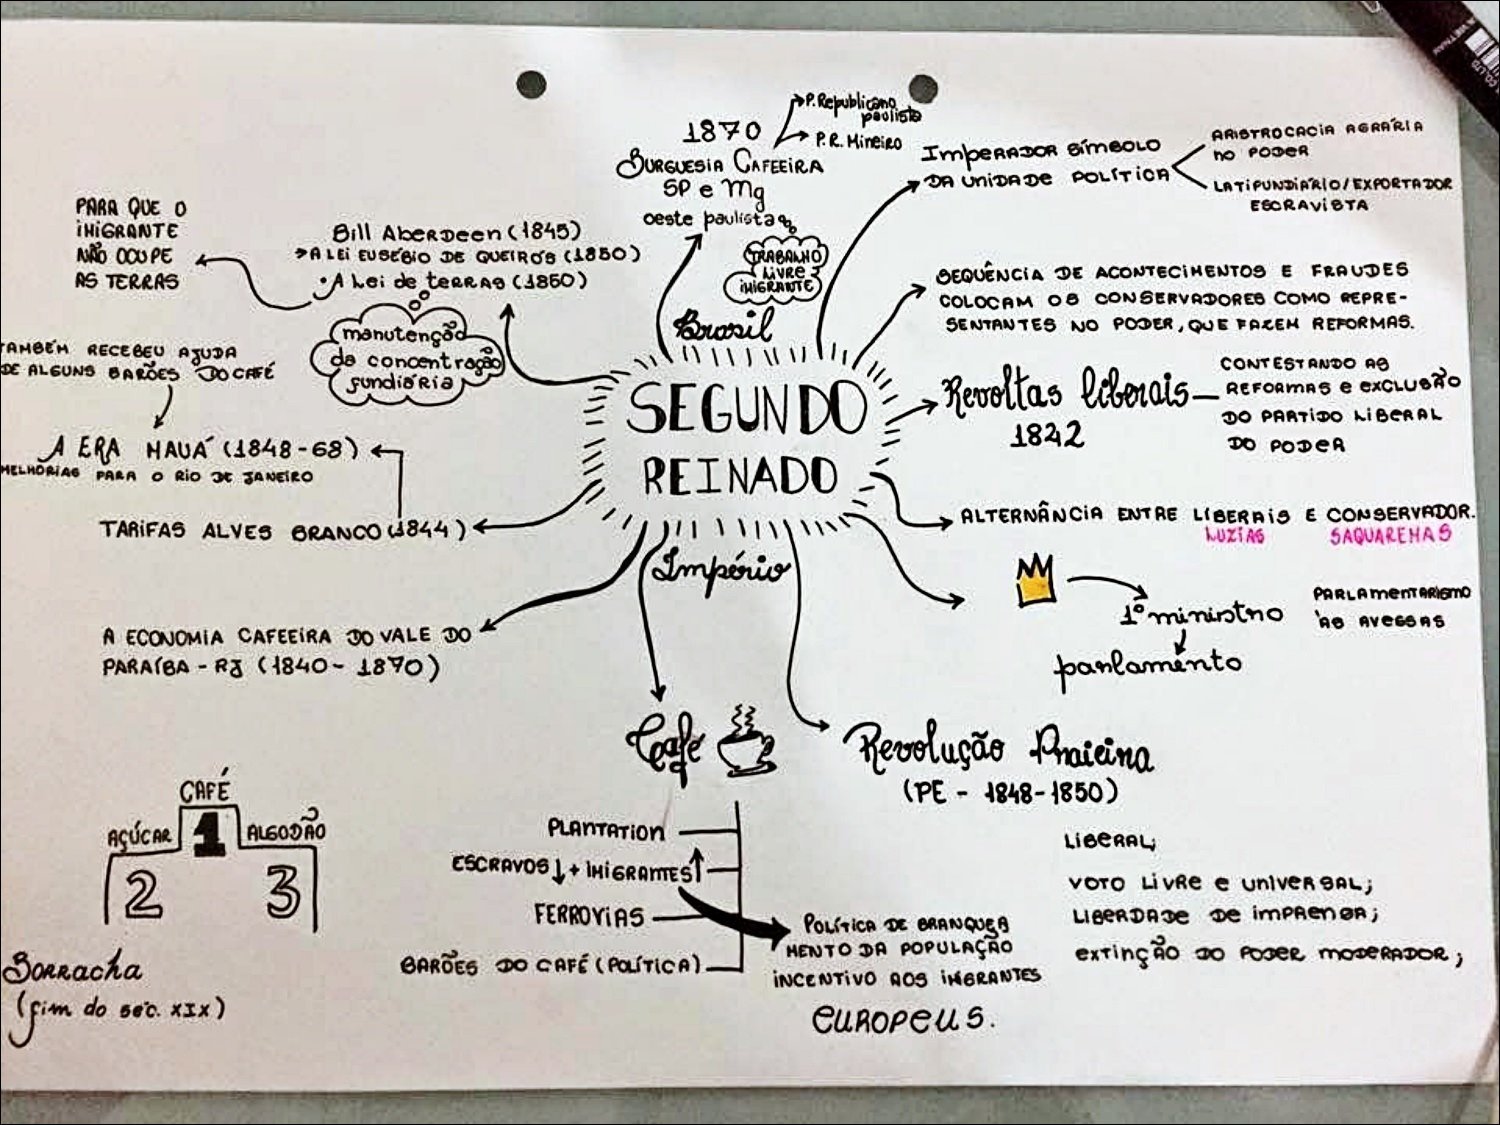 1870
P. Republicano
paulista
P.R. Mineiro
BURGUESIA CAFEEIRA
SP e Mg
oeste paulista
TRABALHO
LIVRE
IMIGRANTE
IMPERADOR SÍMBOLO
DA UNIDADE POLÍTICA
ARISTROCACIA AGRÁRIA
NO PODER
LATIFUNDIÁRIO/EXPORTADOR
ESCRAVISTA
PARA QUE O
IMIGRANTE
NÃO OCUPE
AS TERRAS
Bill Aberdeen (1845)
A LEI EUSÉBIO DE QUEIRÓS (1850)
• A Lei de terras (1850)
manutenção
da concentração
fundiária
SEQUÊNCIA DE ACONTECIMENTOS E FRAUDES
COLOCAM OS CONSERVADORES COMO REPRE-
SENTANTES NO PODER, QUE FAZEM REFORMAS.
Brasil
SEGUNDO
REINADO
Império
Revoltas liberais
1842
CONTESTANDO AS
REFORMAS E EXCLUSÃO
DO PARTIDO LIBERAL
DO PODER
TAMBÉM RECEBEU AJUDA
DE ALGUNS BARÕES DO CAFÉ
A ERA MAUÁ (1848-68)
MELHORIAS PARA O RIO DE JANEIRO
TARIFAS ALVES BRANCO (1844)
ALTERNÂNCIA ENTRE LIBERAIS E CONSERVADOR.
LUZIAS SAQUAREMAS
1º ministro
parlamento
PARLAMENTARISMO
ÀS AVESSAS
A ECONOMIA CAFEEIRA DO VALE DO
PARAÍBA - RJ (1840-1870)
Café
Revolução Praieira
(PE - 1848-1850)
LIBERAL;
VOTO LIVRE E UNIVERSAL;
LIBERDADE DE IMPRENSA;
EXTINÇÃO DO PODER MODERADOR;
PLANTATION
ESCRAVOS↓ + IMIGRANTES↑
FERROVIAS
BARÕES DO CAFÉ (POLÍTICA)
POLÍTICA DE BRANQUEA
MENTO DA POPULAÇÃO
INCENTIVO AOS IMIGRANTES
EUROPEUS.
CAFÉ
AÇÚCAR 1 ALGODÃO
2 3
Borracha
(fim do séc. XIX)